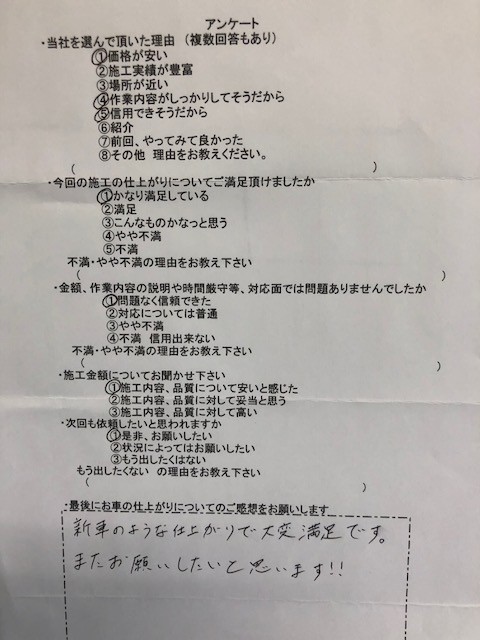 アンケート
・当社を選んで頂いた理由 （複数回答もあり）
①価格が安い
②施工実績が豊富
③場所が近い
④作業内容がしっかりしてそうだから
⑤信用できそうだから
⑥紹介
⑦前回、やってみて良かった
⑧その他 理由をお教えください。
（ ）
・今回の施工の仕上がりについてご満足頂けましたか
①かなり満足している
②満足
③こんなものかなっと思う
④やや不満
⑤不満
不満・やや不満の理由をお教え下さい
（ ）
・金額、作業内容の説明や時間厳守等、対応面では問題ありませんでしたか
①問題なく信頼できた
②対応については普通
③やや不満
④不満 信用出来ない
不満・やや不満の理由をお教え下さい
（ ）
・施工金額についてお聞かせ下さい
①施工内容、品質について安いと感じた
②施工内容、品質に対して妥当と思う
③施工内容、品質に対して高い
・次回も依頼したいと思われますか
①是非、お願いしたい
②状況によってはお願いしたい
③もう出したくはない
もう出したくない の理由をお教え下さい
（ ）
・最後にお車の仕上がりについてのご感想をお願いします
新車のような仕上がりで大変満足です。
またお願いしたいと思います!!